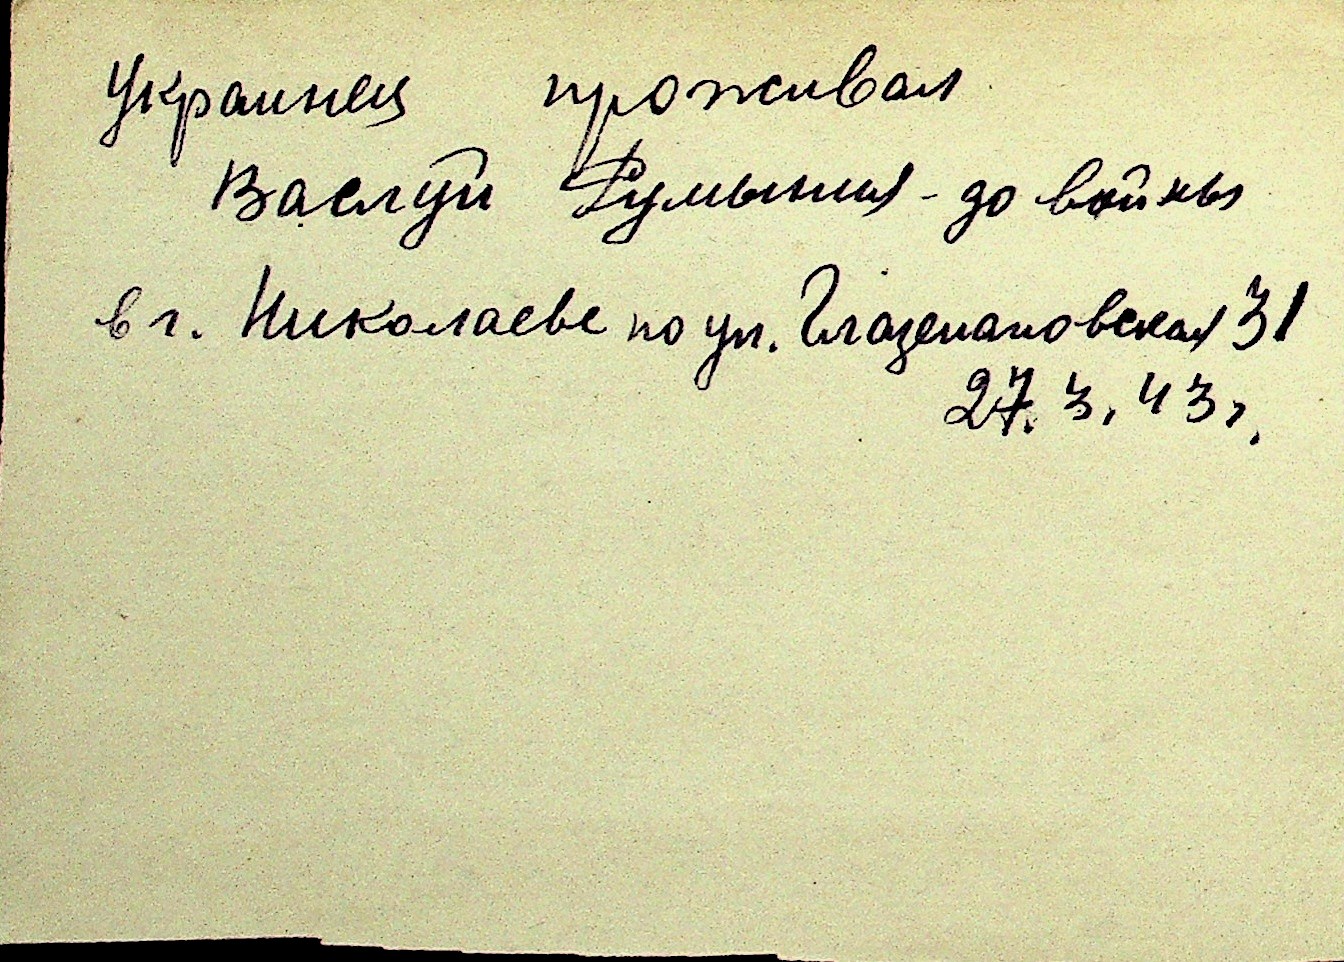 Украинец проживал
Васлуй Румыния - до войны
в г. Николаеве по ул. Глазенаповская 31
27. 3. 43 г.